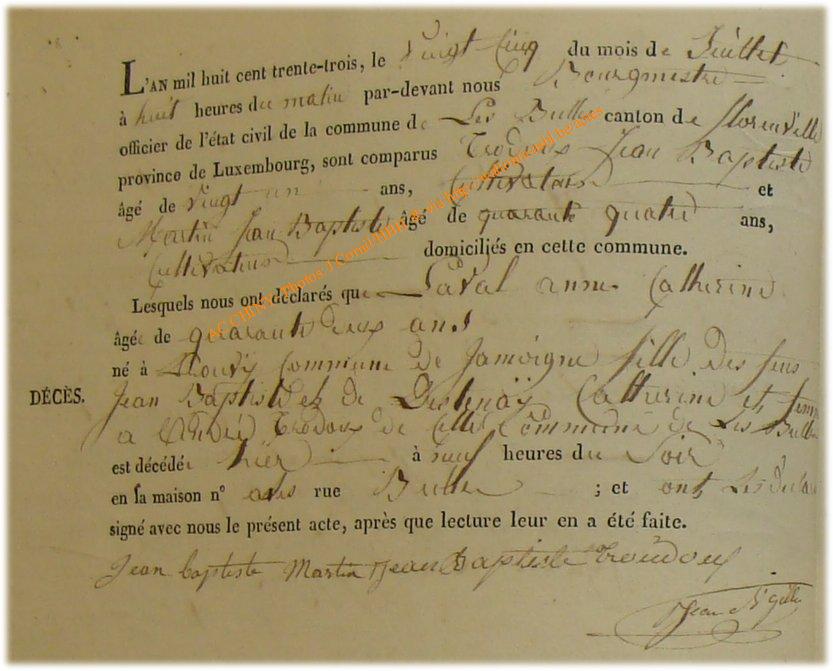 L'AN mil huit cent trente-trois, le Vingt Cinq du mois de Juillet
à huit heures du matin par-devant nous Bourgmestre
officier de l'état civil de la commune de Les Bulles canton de florenville
province de Luxembourg, sont comparus Jean Baptiste
âgé de vingt un ans, Cultivateur et
Martin Jean Baptiste âgé de quarante quatre ans,
Cultivateur domiciliés en cette commune.
Lesquels nous ont déclarés que Laval anne Catherine
âgée de quarante deux ans
né à Commune de Jamoigne fille des feus
DÉCÈS.
Jean Baptiste et de Catherine et femme
a André de Cette Commune de Les Bulles
est décédée hier à neuf heures du Soir
en sa maison n° rue Bulles ; et ont Les
signé avec nous le présent acte, après que lecture leur en a été faite.
Jean baptiste Martin Jean Baptiste
Jean
ACCHINY Photos